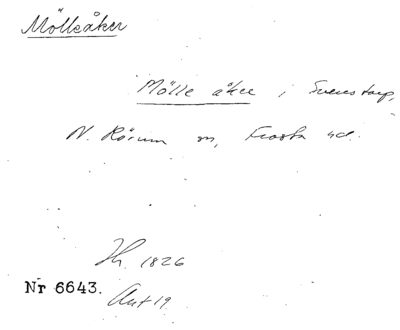 Möllsåker
Mölle åker i Svenstorp,
N. Rörum sn, Frosta hd.
Jh. 1826
Nr 6643.
Akt 19